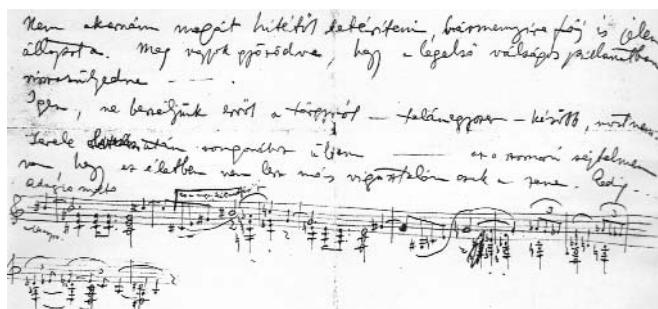 Nem akarnám magát hitétől eltéríteni, bármennyire fáj is jelen
állapota. Meg vagyok győződve, hogy a legelső válságos pillanatban
visszasülyedne — .
Igen, ne beszéljünk erről a tárgyról — talán egyszer — később, most nem.
Levele után zongorához ültem — az a szomorú sejtelmem
van hogy az életben nem lesz más vigasztalóm csak a zene. Pedig —
Adagio molto